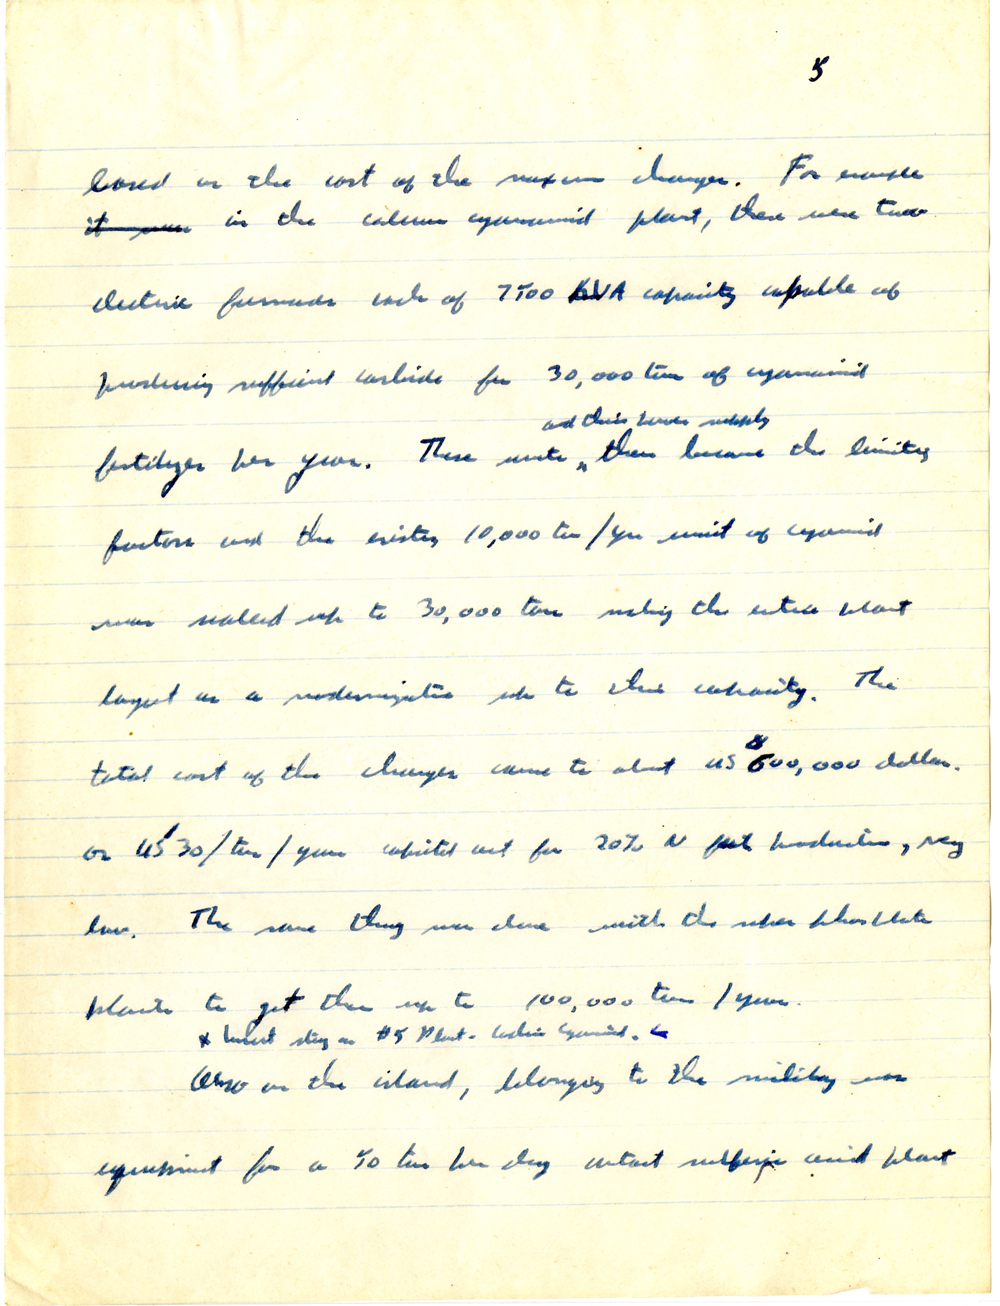 5
based on the cost of the maximum changes. For example
it was in the calcium cyanamid plant, there were two
electric furnaces each of 7500 KVA capacity capable of
producing sufficient carbide for 30,000 tons of cyanamid
and their power supply
fertilizer per year. These units then became the limiting
factors and the existing 10,000 ton/yr unit of cyanamid
was scaled up to 30,000 tons using the extra plant
layout as a modernization up to this capacity. The
total cost of the changes came to about US 600,000 dollars.
or US $30/ton/year capital cost for 20% N production, very
low. The same thing was done with the super phosphate
plants to get them up to 100,000 tons/year.
x Insert story on #5 Plant - Calcium Cyanamid.
Also on the island, belonging to the military was
equipment for a 50 ton per day contact sulfuric acid plant